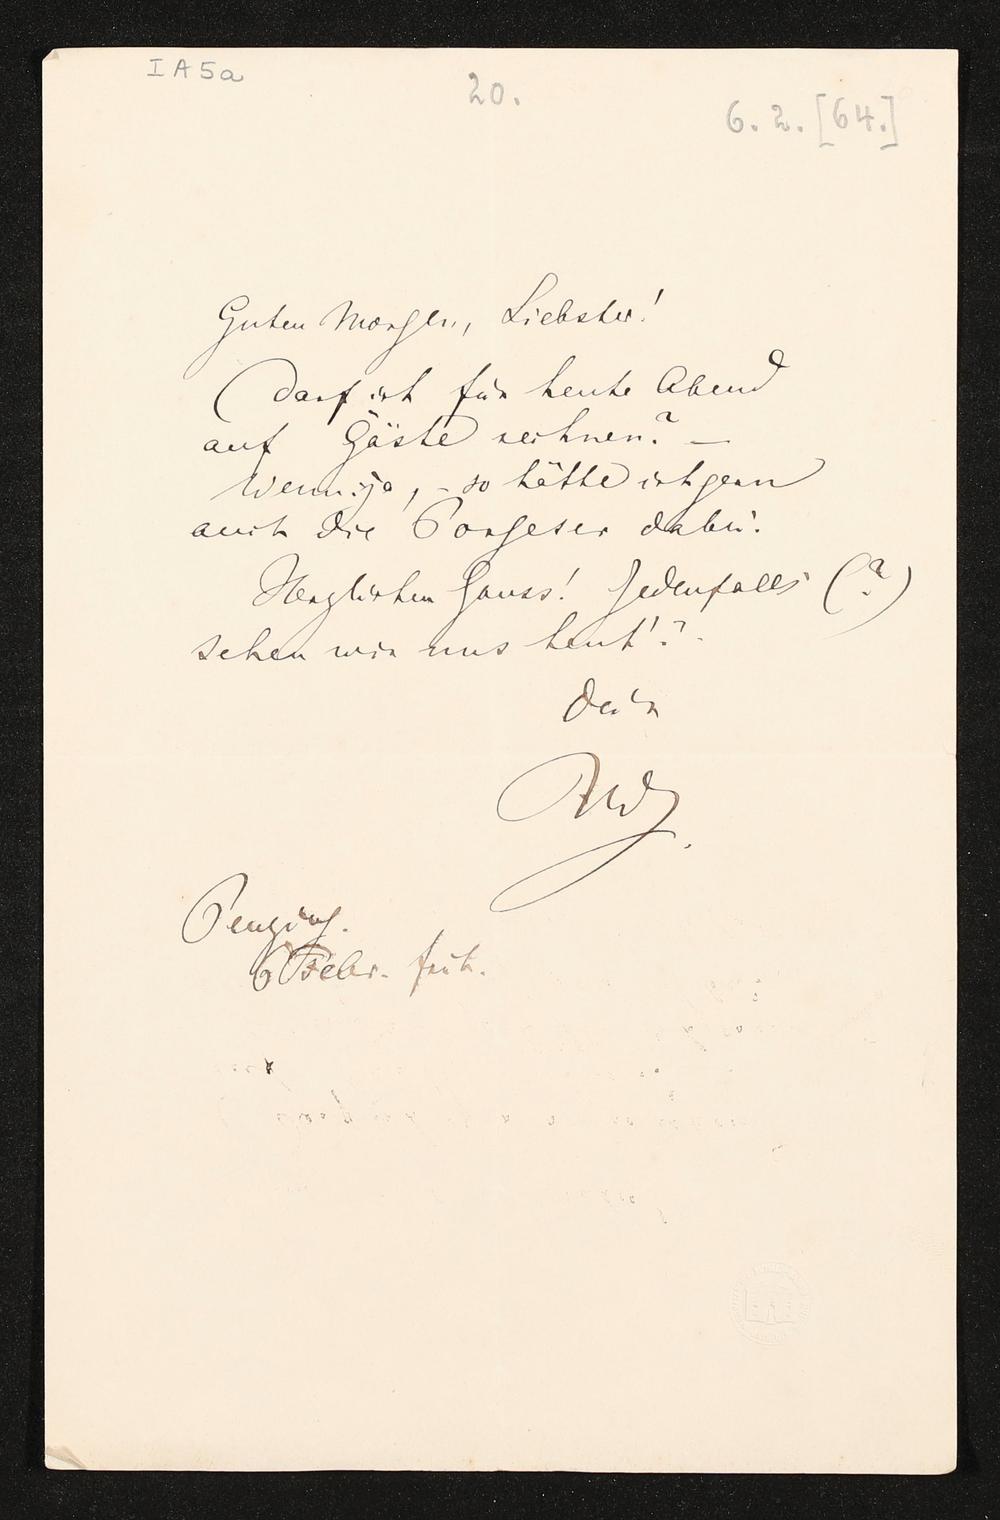 I A 5a
20.
6. 2. [64.]
Guten Morgen, Liebster!
Darf ich für heute Abend
auf Gäste rechnen? —
Wenn ja, – so hätte ich gern
auch die Porgeser dabei.
Herzlichen Gruss! Jedenfalls (?)
sehen wir uns heut'?
Dein
RW.
Penzing.
6 Febr. früh.